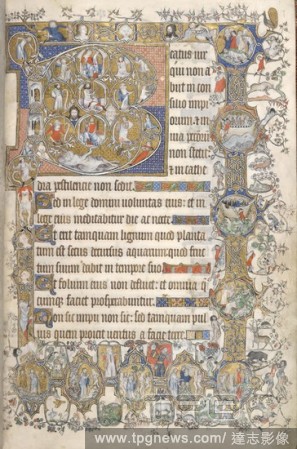 eatus uir
qui non a
biit in con
silio impi
orum et in
uia
non stetit
et in cathe
dra pestilencie non sedit.
Sed in lege domini uoluntas eius: et in
lege eius meditabitur die ac nocte.
Et erit tamquam lignum quod planta
tum est secus decursus aquarum: quod fruc
tum suum dabit in tempore suo
Et folium eius non defluet: et omnia
cumque faciet prosperabuntur.
Non sic impii non sic: sed tamquam pul
uis quem proicit uentus a facie terre.
www.tpgnews.com/ 達志影像